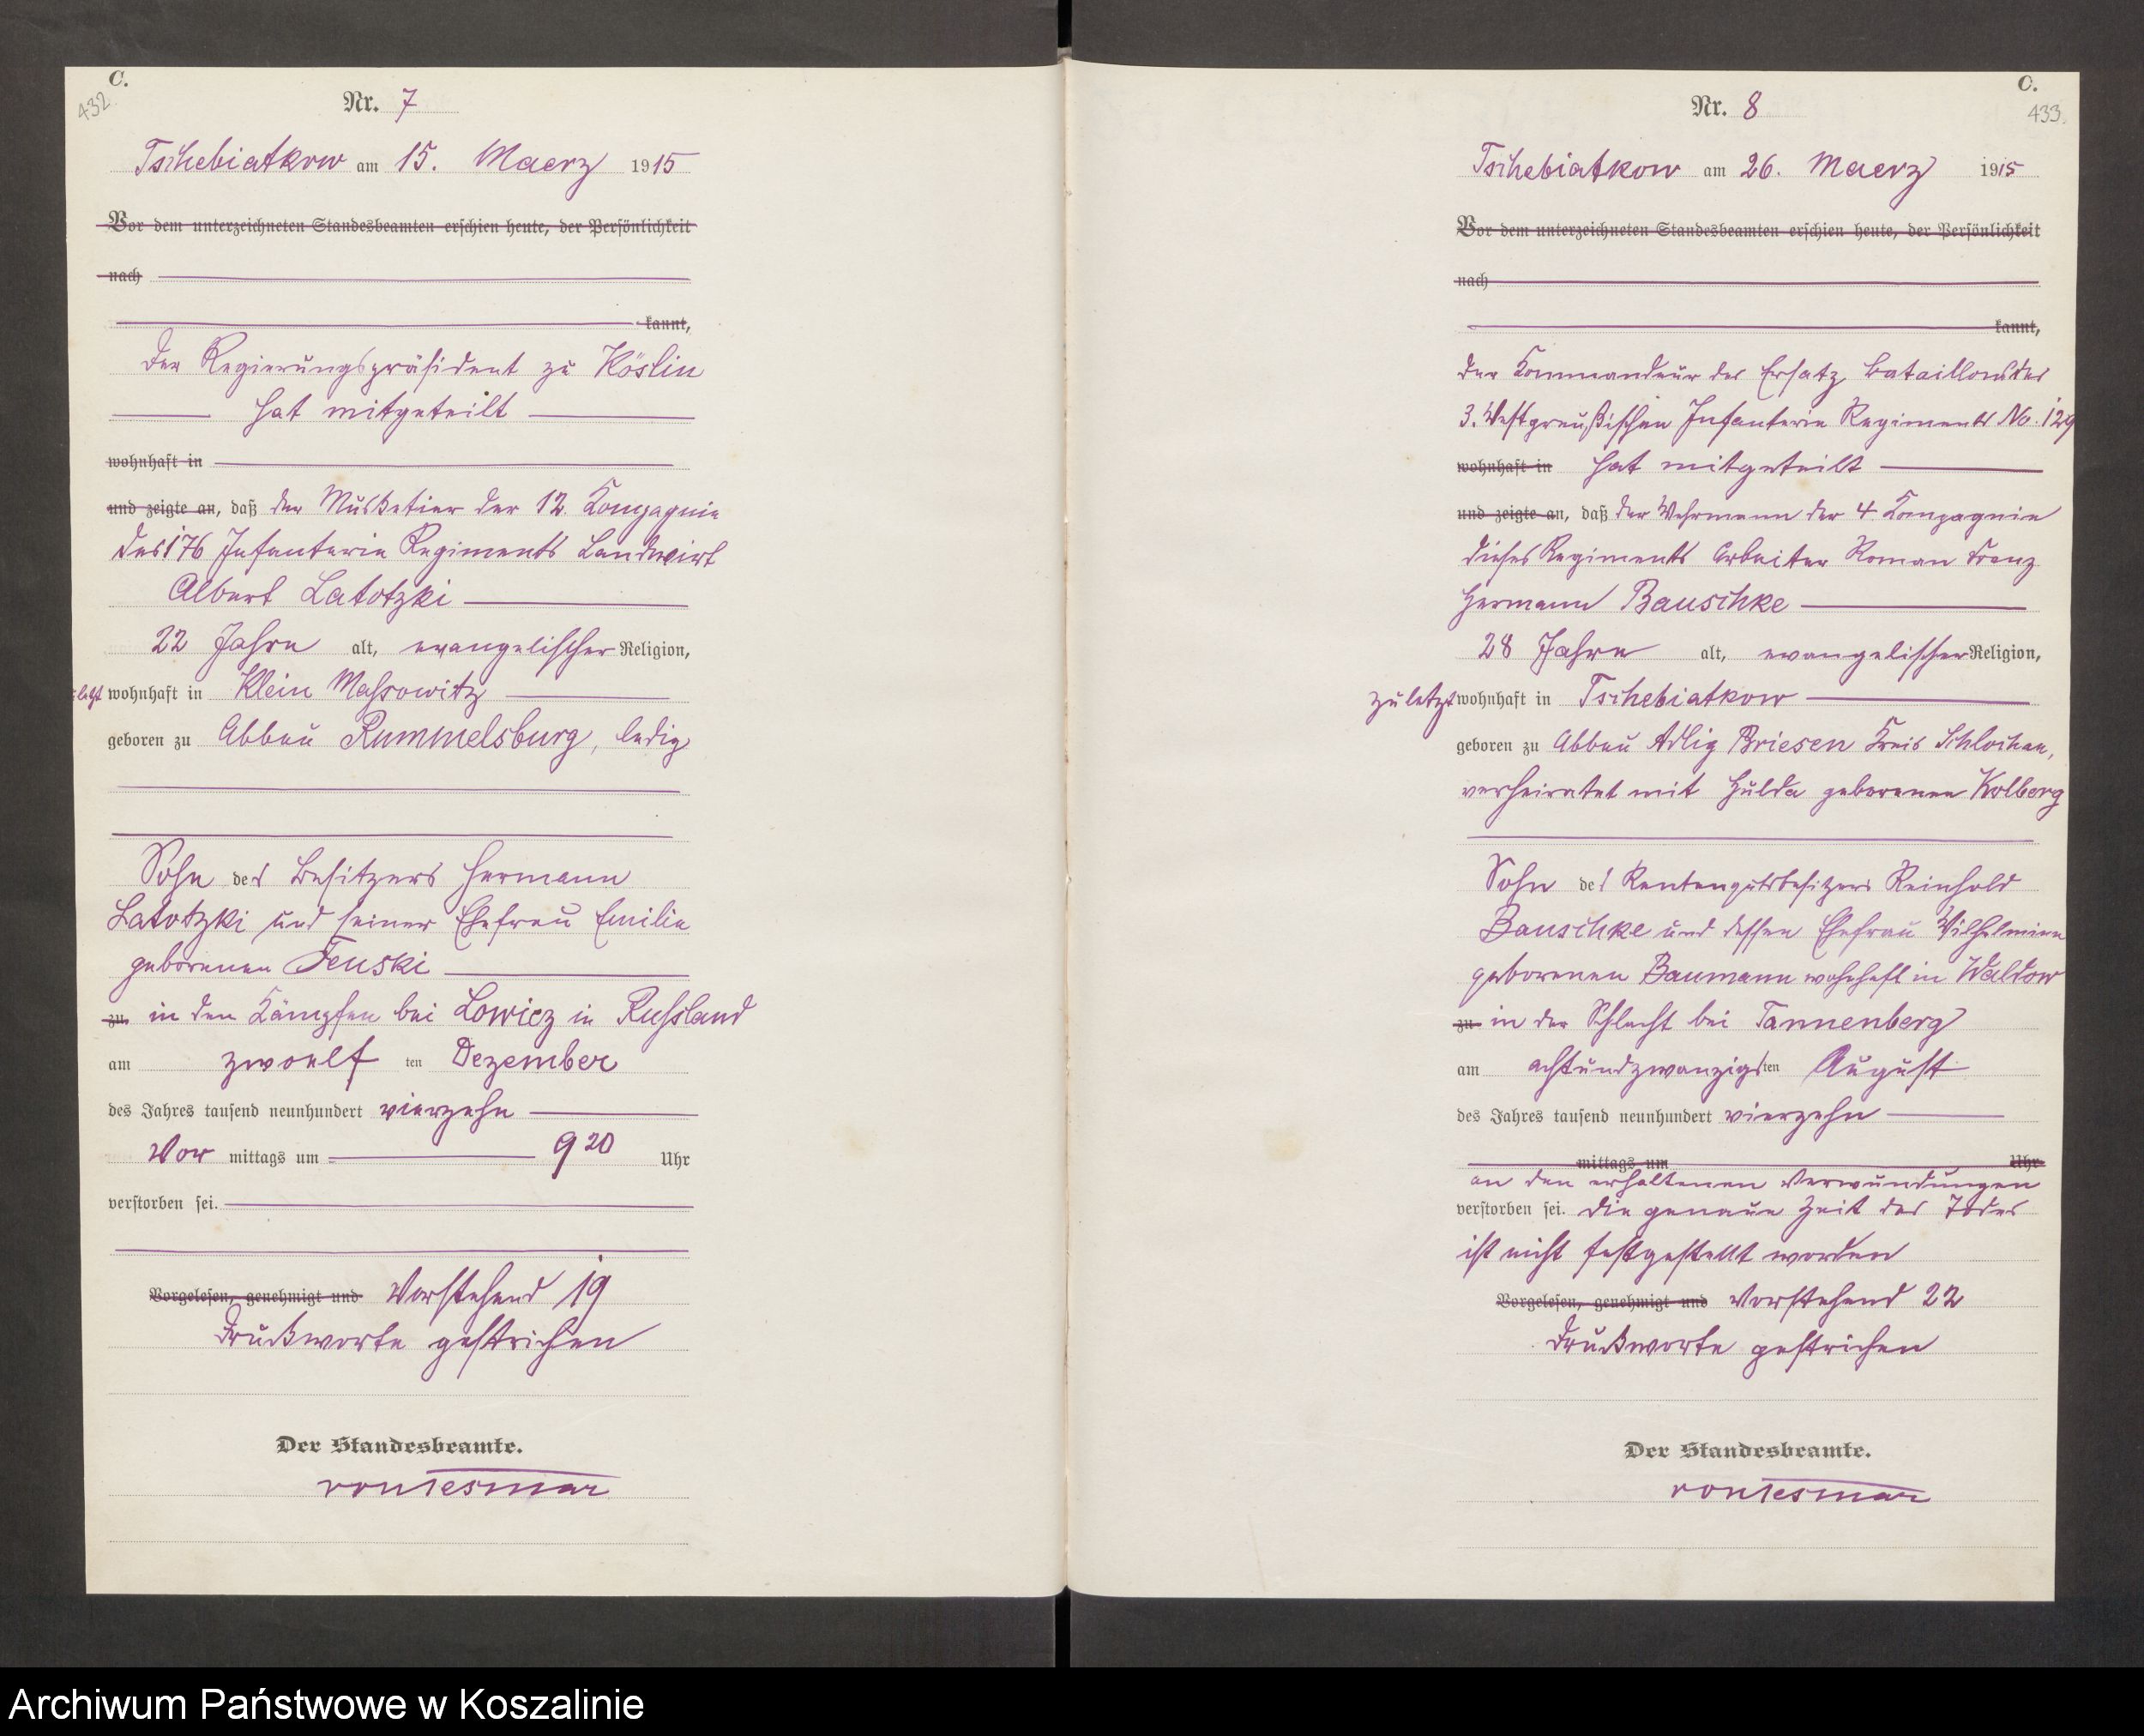 C.
432
Nr. 7
Tschebiatkow am 15. Maerz 1915
Vor dem unterzeichneten Standesbeamten erschien heute, der Persönlichkeit
nach
kannt,
Der Regierungspräsident zu Köslin
hat mitgeteilt
wohnhaft in
und zeigte an, daß der Musketier der 12. Kompagnie
des 176 Infanterie Regiments Landwirt
Albert Latotzki
22 Jahre alt, evangelischer Religion,
zuletzt wohnhaft in Klein Massowitz
geboren zu Abbau Rummelsburg, ledig
Sohn des Besitzers Hermann
Latotzki und seiner Ehefrau Emilie
geborenen Jenski
zu in den Kämpfen bei Lowicz in Russland
am zwoelf ten Dezember
des Jahres tausend neunhundert vierzehn
Vor mittags um 9 20 Uhr
verstorben sei.
Vorgelesen, genehmigt und Vorstehend 19
Druckworte gestrichen
Der Standesbeamte.
von Tesmar
C.
433
Nr. 8
Tschebiatkow am 26. Maerz 1915
Vor dem unterzeichneten Standesbeamten erschien heute, der Persönlichkeit
nach
kannt,
der Kommandeur des Ersatz Bataillons des
3. Westpreußischen Infanterie Regiments No. 129
wohnhaft in hat mitgeteilt
und zeigte an, daß der Wehrmann der 4 Kompagnie
dieses Regiments Arbeiter Roman Franz
Hermann Bauschke
28 Jahre alt, evangelischer Religion,
zuletzt wohnhaft in Tschebiatkow
geboren zu Abbau Adlig Briesen Kreis Schlochau,
verheiratet mit Hulda geborenen Kolberg
Sohn des Rentengutsbesitzers Reinhold
Bauschke und dessen Ehefrau Wilhelmine
geborenen Baumann wohnhaft in Waldow
zu in der Schlacht bei Tannenberg
am achtundzwanzigsten August
des Jahres tausend neunhundert vierzehn
mittags um Uhr
an den erhaltenen Verwundungen
verstorben sei. Die genaue Zeit des Todes
ist nicht festgestellt worden
Vorgelesen, genehmigt und Vorstehend 22
Druckworte gestrichen
Der Standesbeamte.
von Tesmar
Archiwum Państwowe w Koszalinie